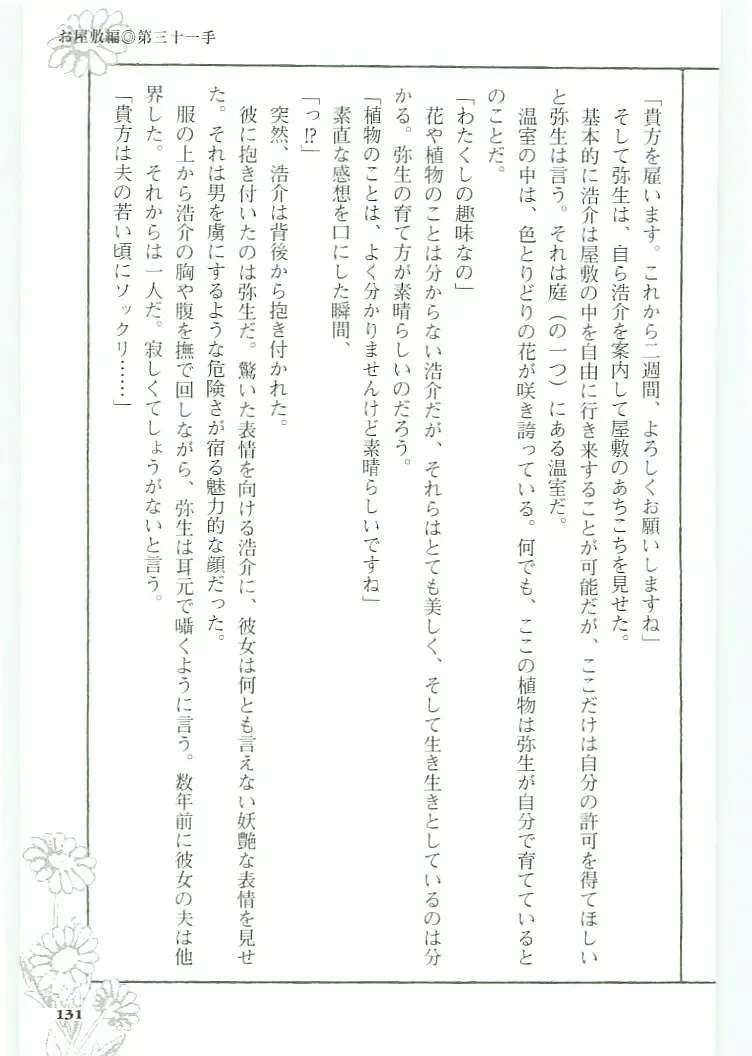 お屋敷編◎第三十一手
「貴方を雇います。これから二週間、よろしくお願いしますね」
そして弥生は、自ら浩介を案内して屋敷のあちこちを見せた。
基本的に浩介は屋敷の中を自由に行き来することが可能だが、ここだけは自分の許可を得てほしい
と弥生は言う。それは庭（の一つ）にある温室だ。
温室の中は、色とりどりの花が咲き誇っている。何でも、ここの植物は弥生が自分で育てていると
のことだ。
「わたくしの趣味なの」
花や植物のことは分からない浩介だが、それらはとても美しく、そして生き生きとしているのは分
かる。弥生の育て方が素晴らしいのだろう。
「植物のことは、よく分かりませんけど素晴らしいですね」
素直な感想を口にした瞬間、
「っ!?」
突然、浩介は背後から抱き付かれた。
彼に抱き付いたのは弥生だ。驚いた表情を向ける浩介に、彼女は何とも言えない妖艶な表情を見せ
た。それは男を虜にするような危険さが宿る魅力的な顔だった。
服の上から浩介の胸や腹を撫で回しながら、弥生は耳元で囁くように言う。数年前に彼女の夫は他
界した。それからは一人だ。寂しくてしょうがないと言う。
「貴方は夫の若い頃にソックリ……」
131